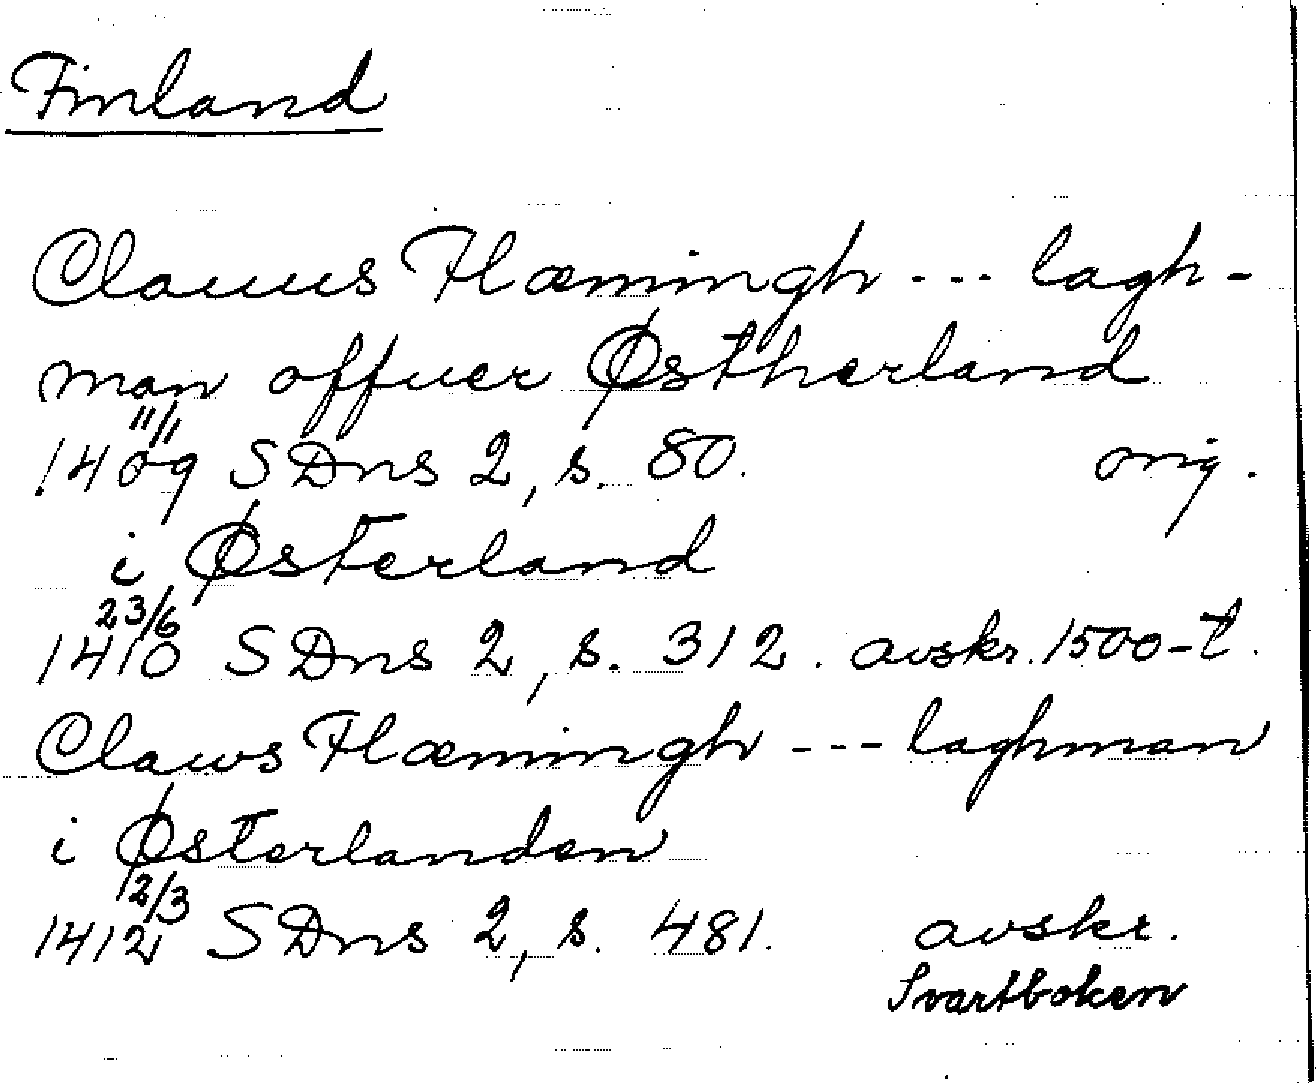 Finland
Clauus Flæmingh --- lagh-
man offuer Østherland
11/1
1409 SDns 2, s. 80. orig.
i Østerland
23/6
1410 SDns 2, s. 312. avskr. 1500-t.
Claws Flæmingh --- laghman
i Østerlanden
12/3
1412 SDns 2, s. 481. avskr.
Svartboken